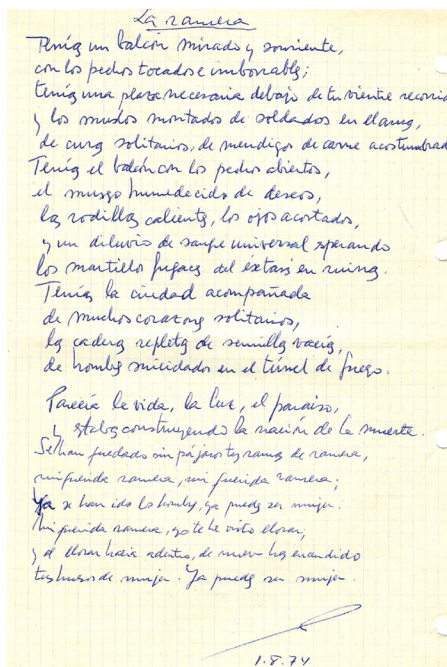 La ramera
Tenías un balcón mirado y sonriente,
con los pechos tocados e imborrables;
tenías una plaza necesaria debajo de tu vientre recorrido
y los muslos montados de soldados en llamas,
de curas solitarios, de mendigos de carne acostumbrad
Tenías el balcón con los pechos abiertos,
el musgo humedecido de deseos,
las rodillas calientes, los ojos acostados,
y un diluvio de sangre universal esperando
los martillos fugaces del éxtasis en ruinas.
Tenías la ciudad acompañada
de muchos corazones solitarios,
las caderas repletas de semillas vacías,
de hombres suicidados en el túnel de fuego.
Parecía la vida, la luz, el paraíso,
y estabas construyendo la nación de la muerte.
Se han quedado sin pájaros tus ramas de ramera,
mi querida ramera, mi querida ramera;
Ya se han ido los hombres, ya puedes ser mujer.
Mi querida ramera, yo te he visto llorar,
y al llorar hacia adentro, de nuevo has encendido
tus huesos de mujer. Ya puedes ser mujer.
1.8.74